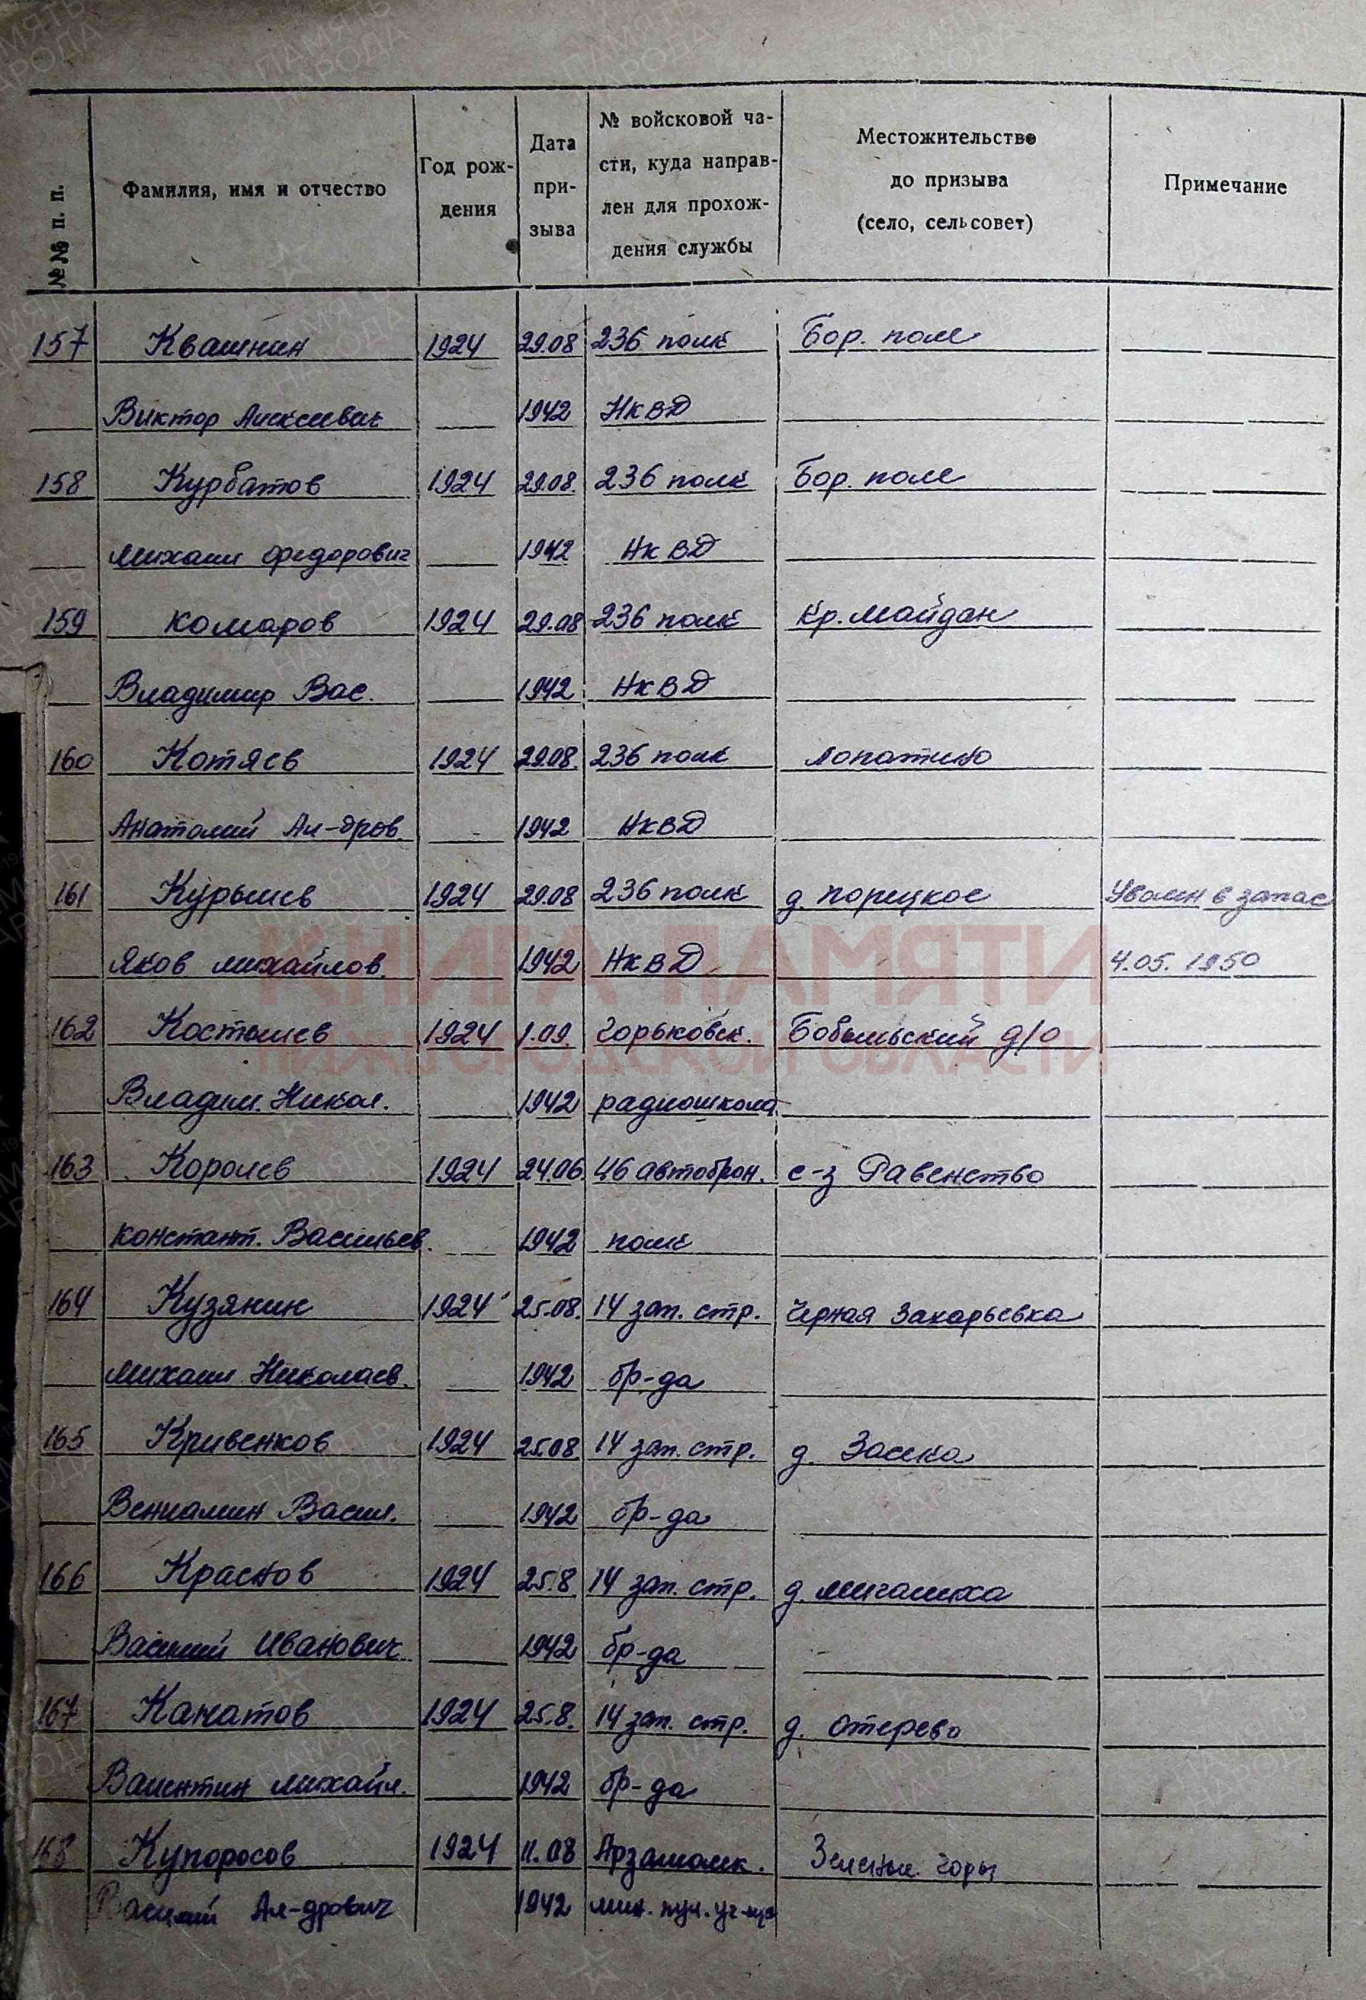 №№ п. п.
Фамилия, имя и отчество
Год рож-
дения
Дата
при-
зыва
№ войсковой ча-
сти, куда направ-
лен для прохож-
дения службы
Местожительство
до призыва
(село, сельсовет)
Примечание
157 Квашнин 1924 29.08 236 полк Бор. поле
Виктор Алексеевич 1942 НКВД
158 Курбатов 1924 29.08. 236 полк Бор. поле
Михаил Федорович 1942 НКВД
159 Комаров 1924 29.08 236 полк Кр. Майдан
Владимир Вас. 1942 НКВД
160 Котяев 1924 29.08. 236 полк Лопатино
Анатолий Ал-дров. 1942 НКВД
161 Курылев 1924 29.08 236 полк д. Порецкое Уволен в запас
Яков Михайлов. 1942 НКВД 4.05. 1950
КНИГА ПАМЯТИ
НИЖЕГОРОДСКОЙ ОБЛАСТИ
162 Костылев 1924 1.09. Горьковск. Бобыльский д/о
Владим. Никол. 1942 радиошкола
163 Королев 1924 24.06. 46 автоброн. с-з Равенство
Констант. Васильев. 1942 полк
164 Кузянин 1924 25.08. 14 зап. стр. Черная Захарьевка
Михаил Николаев. 1942 бр-да
165 Кривенков 1924 25.08 14 зап. стр. д.
Вениамин Васил. 1942 бр-да
166 Краснов 1924 25.8. 14 зап. стр. д. Мигалиха
Василий Иванович 1942 бр-да
167 Канатов 1924 25.8. 14 зап. стр. д. Отерево
Валентин Михайл. 1942 бр-да
168 Купоросов 1924 11.08 Арзамаск. Зеленые горы
Василий Ал-дрович 1942 мин. пул. уч-ще
ПАМЯТЬ
НАРОДА